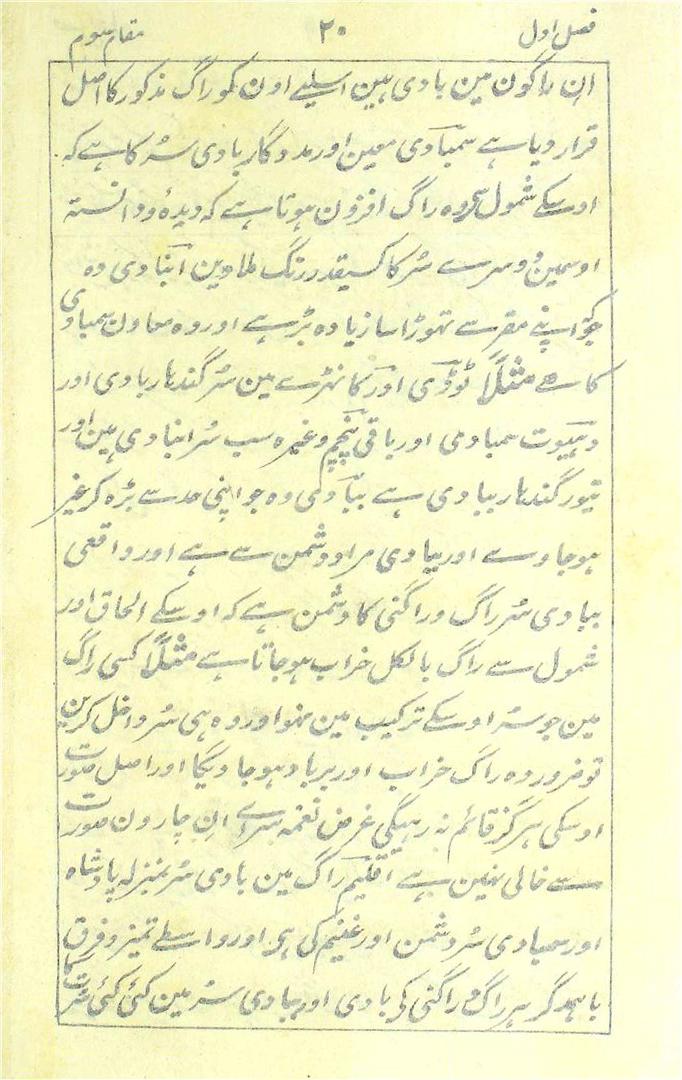 فصل اول ۲۰ مقام سوم
ان راگون مین بادی ہین اسلیے اون کو راگ مذکور کا اصل
قرار دیا ہے سمبادی معین اور مددگار بادی سُر کا ہے کہ
اوسکے شمول سے وہ راگ افزون ہوتا ہے کہ دیدہ و دانستہ
اوسمین دوسرے سُر کا کسیقدر رنگ ملاوین انبادی وہ
جو اپنے مقر سے تہوڑا سا زیادہ بڑہے اور وہ معاون سمبادی
کا ہے مثلاً ٹوڈی اور کانہڑے مین سُر گندہار بادی اور
دہیوت سمبادی اور باقی پنچم وغیرہ سب سُر انبادی ہین اور
تیور گندہار ببادی ہے ببادی وہ جو اپنی حد سے بڑہ کر غیر
ہو جاوے اور ببادی مراد دشمن سے ہے اور واقعی
ببادی سُر راگ و راگنی کا دشمن ہے کہ اوسکے الحاق اور
شمول سے راگ بالکل خراب ہو جاتا ہے مثلاً کسی راگ
مین جو سُر اوسکے ترکیب مین نہو اور وہ ہی سُر داخل کرین
تو ضرور وہ راگ خراب اور برباد ہو جاویگا اور اصل صورت
اوسکی ہرگز قائم نہ رہیگی غرض نغمہ سراے ان چارون صورت
سے خالی نہین ہے اقلیم راگ مین بادی سُر بمنزلہ پادشاہ
اور سمبادی سُر دشمن اور غنیم کی ہی اور واسطے تمیز و فرق
باہمدگر ہر راگ و راگنی کی بادی اور ببادی سُر مین کئی کئی سُرت کا